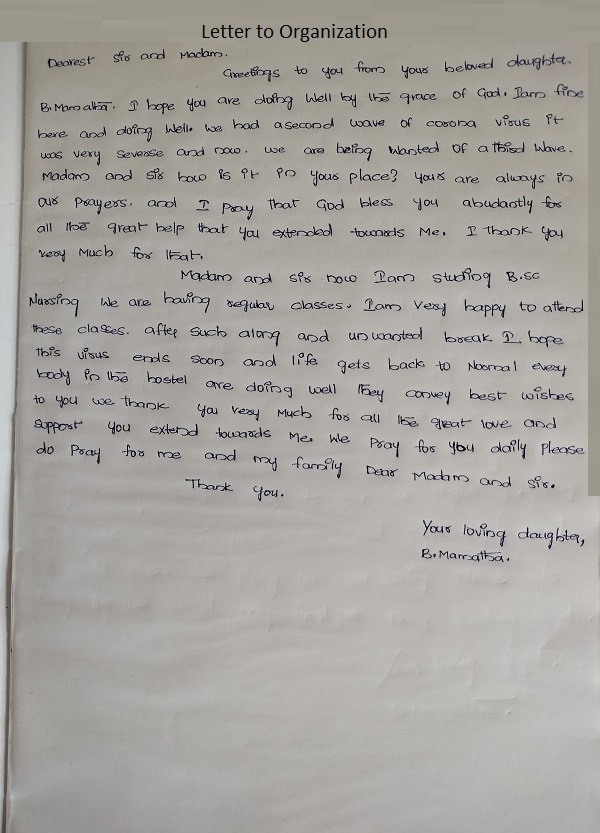 Letter to Organization
Dearest Sir and Madam.
Greetings to you from your beloved daughter.
B. Mamatha. I hope you are doing Well by the grace of God. Iam fine
here and doing Well. we had asecond wave of corona virus it
was very severse and now. we are being Wanted of a third Wave.
Madam and sir how is it in your place? your are always in
our Prayers. and I Pray that God bless you abudantly for
all the great help that you extended towards Me. I thank you
very Much for that.
Madam and sir now Iam studing B.sc
Nursing We are having regular classes. Iam very happy to attend
these classes. after such along and unwanted break I hope
this virus ends soon and life gets back to Normal every
body in the hostel are doing well they convey best wishes
to you we thank you very Much for all the great love and
support you extend towards Me. We Pray for you daily Please
do Pray for me and my family Dear Madam and sir.
Thank you.
Your loving daughter,
B. Mamatha.